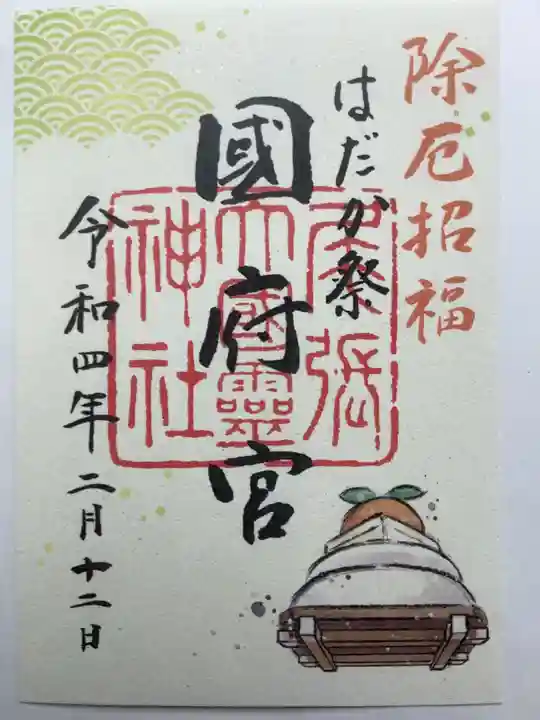 除厄招福
はだか祭
國府宮
尾張
大國靈
神社
令和四年二月十二日